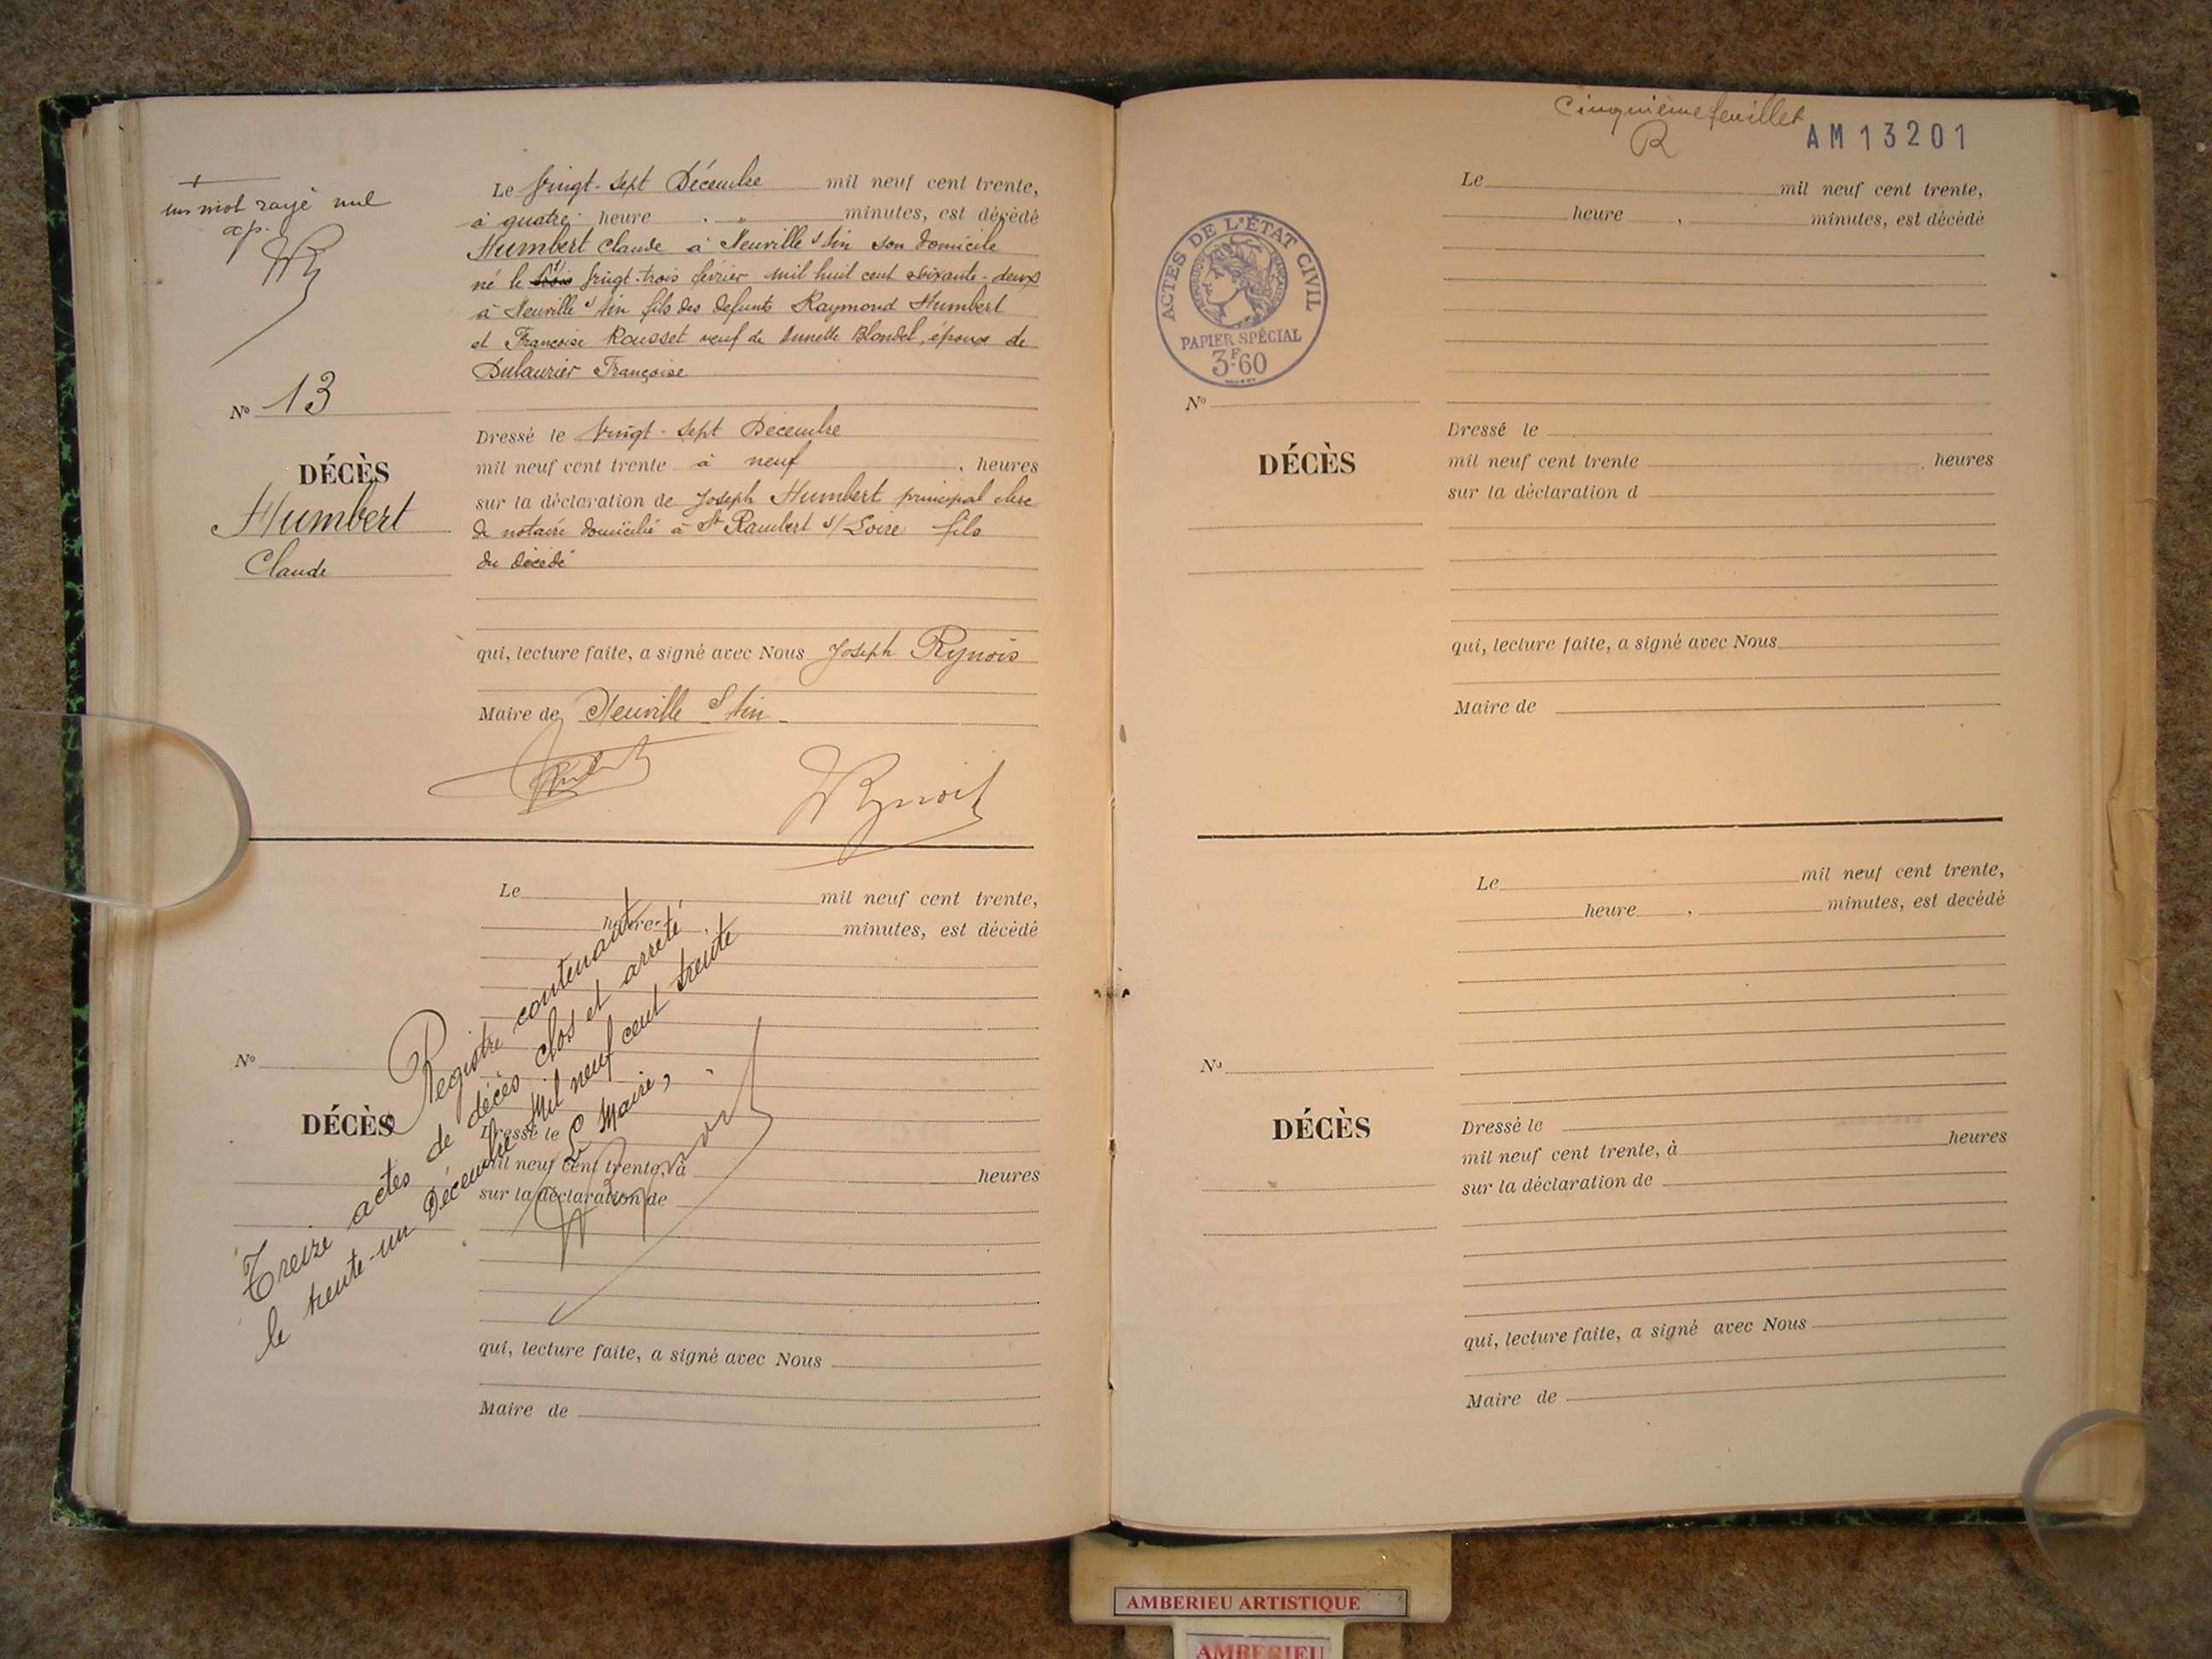 +
un mot rayé nul
ap.
Le Vingt-sept Décembre mil neuf cent trente,
à quatre heure , " minutes, est décédé
Humbert Claude à Neuville s/Ain son domicile
né le trois vingt-trois février mil huit cent soixante-deux
à Neuville s/Ain fils des defunts Raymond Humbert
et Françoise Rousset veuf de Annette Blondel, époux de
Dulaurier Françoise
No 13
DÉCÈS
Humbert
Claude
Dressé le Vingt-sept Décembre
mil neuf cent trente à neuf , heures
sur la déclaration de Joseph Humbert principal clerc
de notaire domicilié à St Rambert s/Loire fils
du décédé
qui, lecture faite, a signé avec Nous Joseph Rynois
Maire de Neuville s/Ain
Le mil neuf cent trente,
heure , minutes, est décédé
No
DÉCÈS
Dressé le
mil neuf cent trente, à heures
sur la déclaration de
qui, lecture faite, a signé avec Nous
Maire de
Registre contenant
Treize actes de décès clos et arrêté
le trente-un Décembre Mil neuf cent trente
Le Maire,
Cinquième feuillet
R
AM13201
ACTES DE L'ÉTAT CIVIL
RÉPUBLIQUE FRANÇAISE
PAPIER SPÉCIAL
3F60
Le mil neuf cent trente,
heure , minutes, est décédé
No
DÉCÈS
Dressé le
mil neuf cent trente , heures
sur la déclaration d
qui, lecture faite, a signé avec Nous
Maire de
Le mil neuf cent trente,
heure , minutes, est decédé
No
DÉCÈS
Dressé le
mil neuf cent trente, à heures
sur la déclaration de
qui, lecture faite, a signé avec Nous
Maire de
AMBERIEU ARTISTIQUE
AMBERIEU